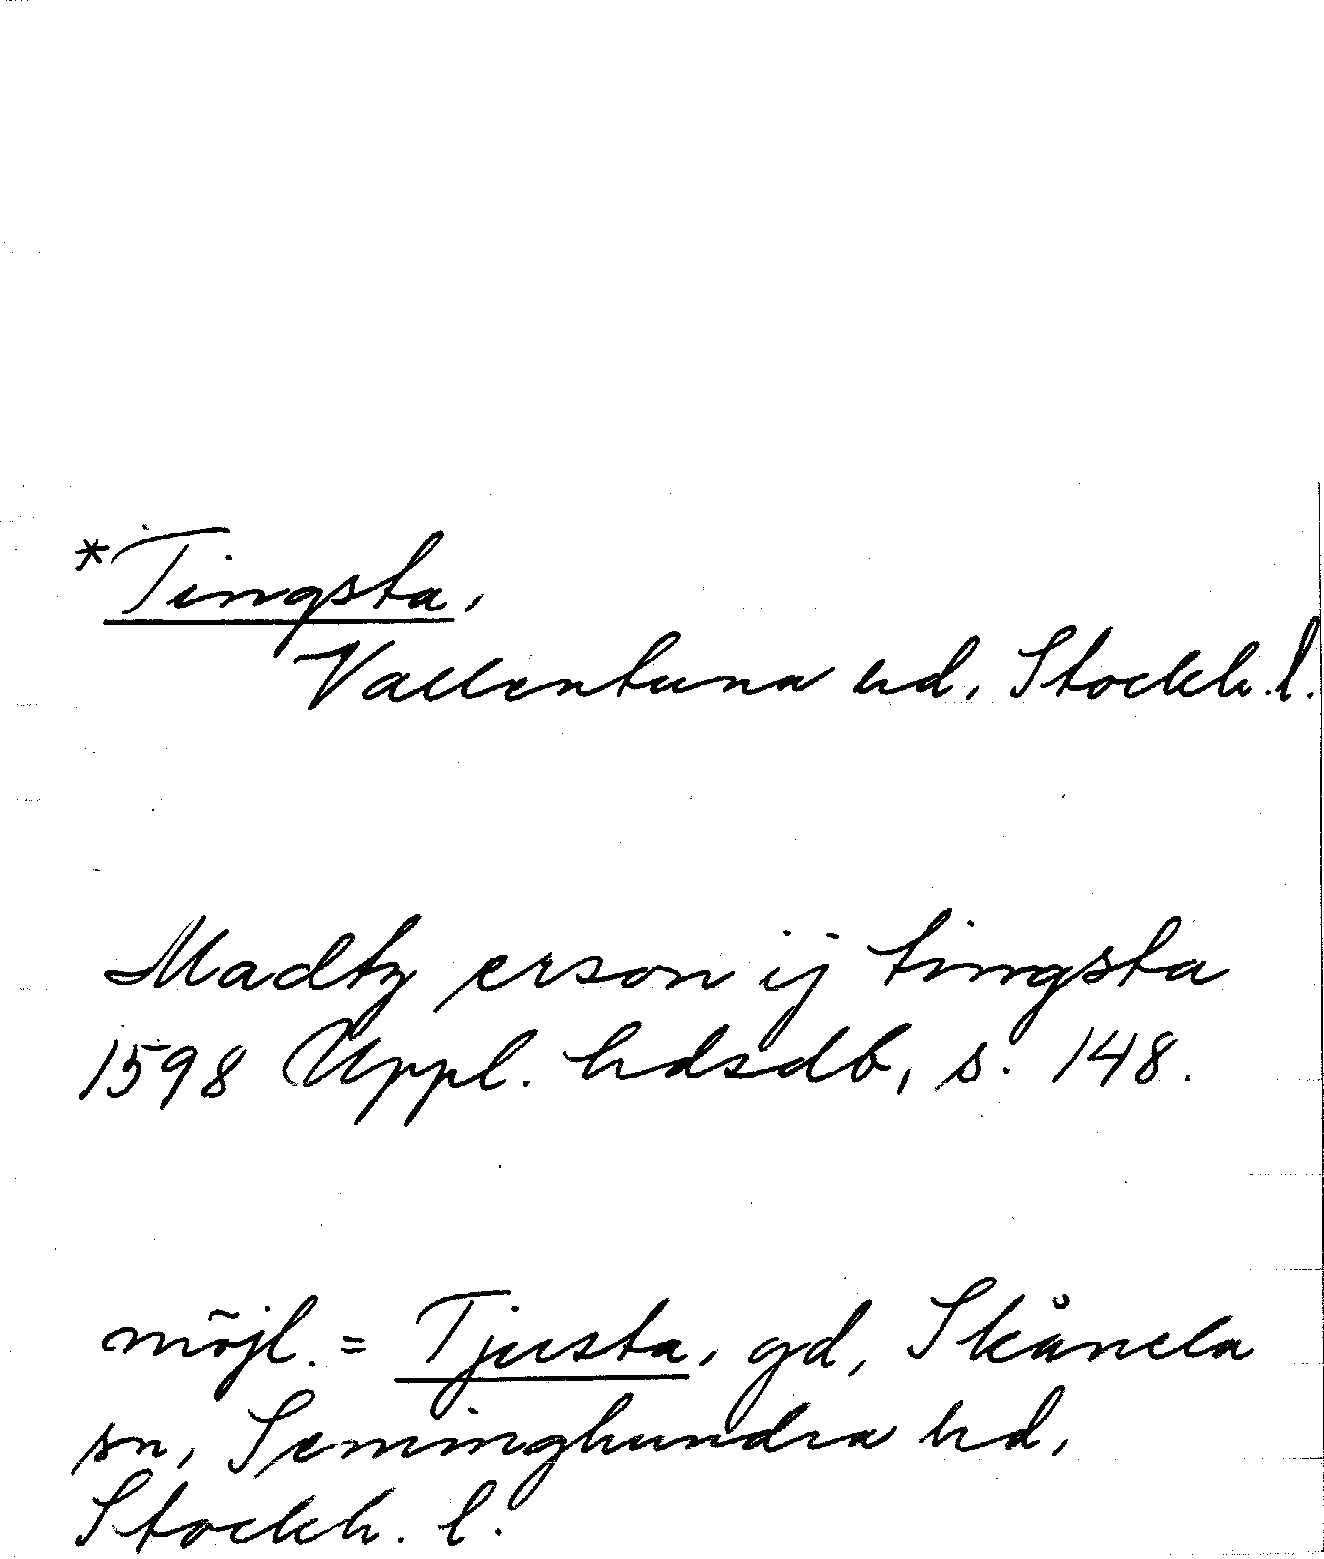 *Tingsta,
Vallentuna hd, Stockh. l.
Madtz erson ij tingsta
1598 Uppl. hdsdb, s. 148.
möjl. = Tjusta, gd, Skånela
sn, Seminghundra hd,
Stockh. l.